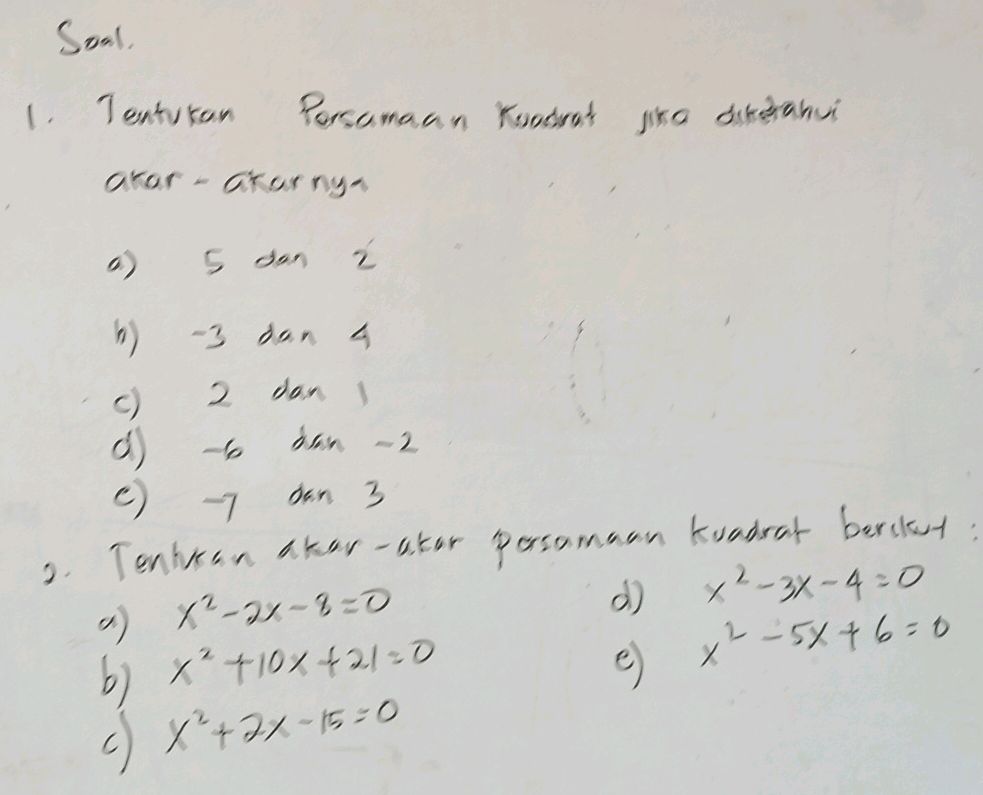 Soal.
1. Tentukan Persamaan Kuadrat jika diketahui
akar - akarnya
a) 5 dan 2
b) -3 dan 4
c) 2 dan 1
d) -6 dan -2
e) -7 dan 3
2. Tentukan akar-akar persamaan kuadrat berikut :
a) x² - 2x - 8 = 0
b) x² + 10x + 21 = 0
c) x² + 2x - 15 = 0
d) x² - 3x - 4 = 0
e) x² - 5x + 6 = 0